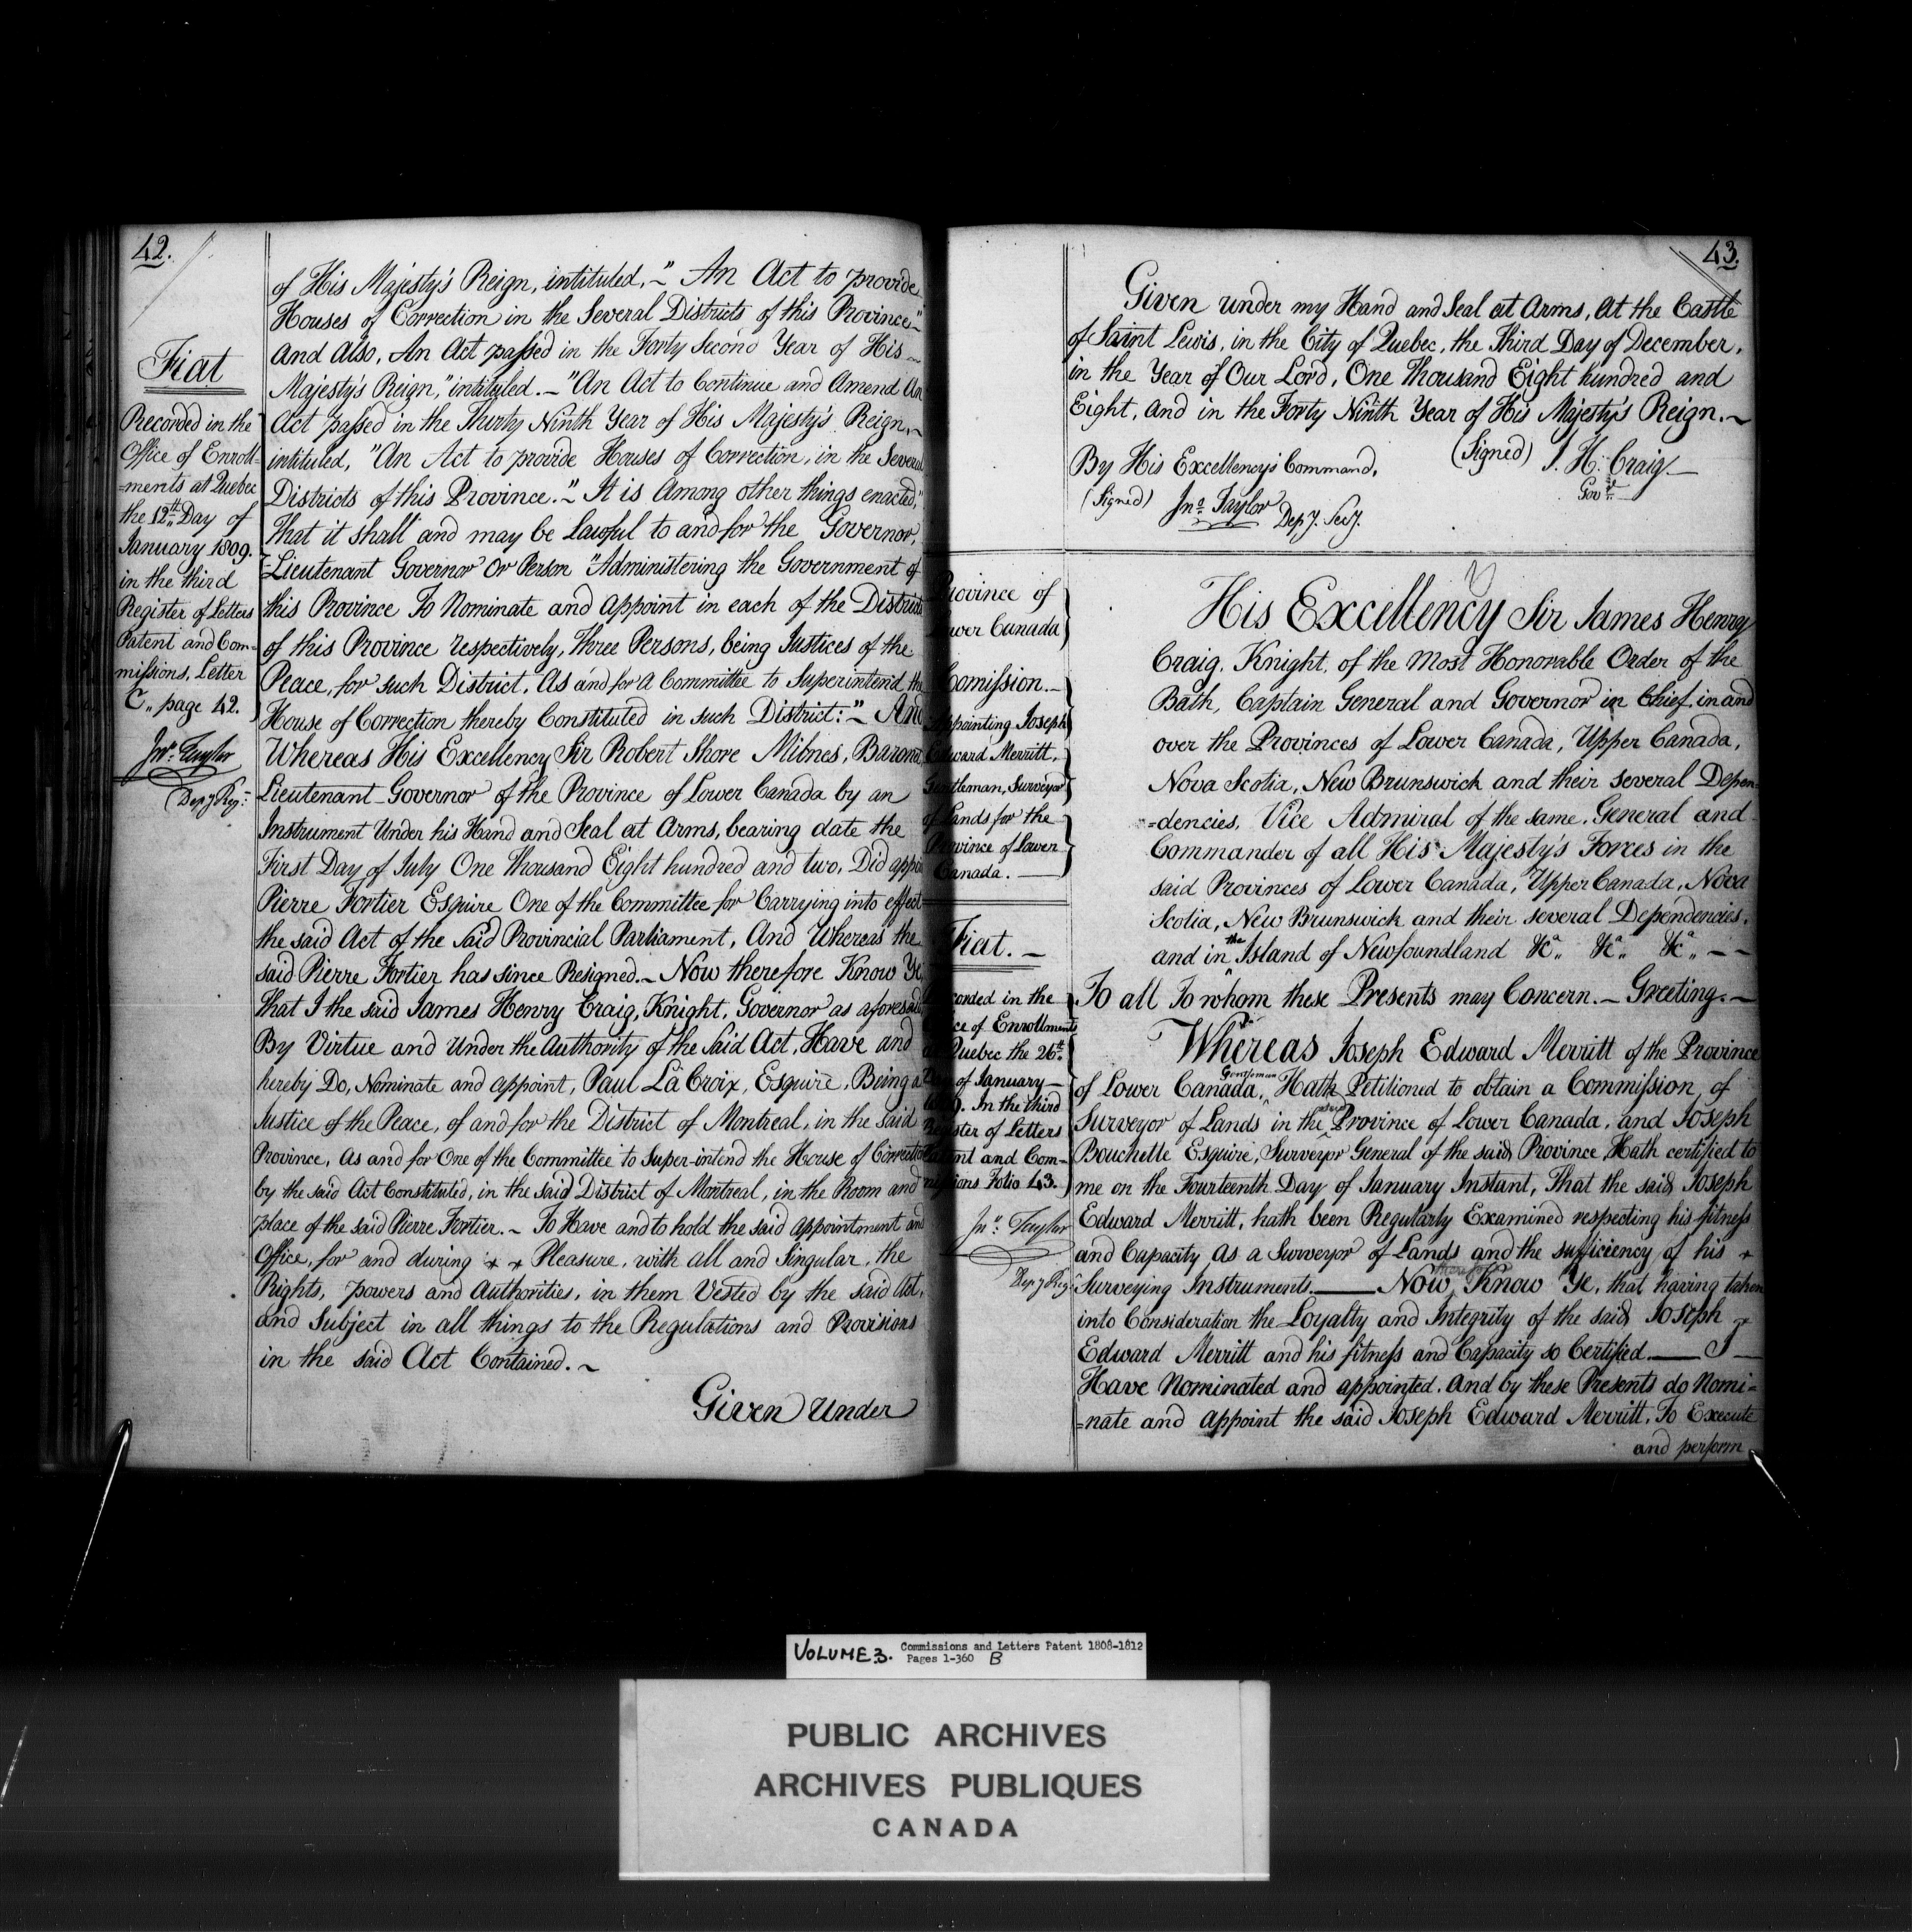 42.
Fiat
Recorded in the
Office of Enroll-
=ments at Quebec
the 12th Day of
January 1809.
in the third
Register of Letters
Patent and Com-
missions, Letter
C,, page 42.
Jno. Taylor
Depy Reg:
of His Majesty's Reign, intituled,~" An Act to provide
Houses of Correction in the Several Districts of this Province"~
and also, An Act passed in the Forty Second Year of His~
Majesty's Reign," intituled.~"An Act to Continue and Amend An
Act passed in the Thirty Ninth Year of His Majesty's Reign,~
intituled, "An Act to provide Houses of Correction, in the Several
Districts of this Province."~ It is Among other things enacted,"
That it shall and may be Lawful to and for the Governor,
Lieutenant Governor Or Person "Administering the Government of
this Province To Nominate and Appoint in each of the Districts
of this Province respectively, Three Persons, being Justices of the
Peace, for such District, As and for A Committee to Superintend the
House of Correction thereby Constituted in such District:"~ And
Whereas His Excellency Sir Robert Shore Milnes, Baronet
Lieutenant Governor of the Province of Lower Canada by an
Instrument Under his Hand and Seal at Arms, bearing date the
First Day of July One Thousand Eight hundred and two, Did appoin
Pierre Fortier Esquire One of the Committee for Carrying into effect
the said Act of the Said Provincial Parliament, And Whereas the
said Pierre Fortier has since Resigned.~ Now therefore Know Ye
that I the said James Henry Craig, Knight, Governor as aforesaid
By Virtue and Under the Authority of the Said Act, Have and
hereby Do, Nominate and appoint, Paul La Croix, Esquire, Being a
Justice of the Peace, of and for the District of Montreal, in the said
Province, As and for One of the Committee to Super-intend the House of Correction
by the said Act Constituted, in the said District of Montreal, in the Room and
place of the said Pierre Fortier.~ To Have and to hold the said appointment and
Office, for and during + + Pleasure, with all and Singular, the
Rights, powers and Authorities, in them Vested by the said Act,
and Subject in all things to the Regulations and Provisions
in the said Act Contained.~
Given Under
43.
Given under my Hand and Seal at Arms, At the Castle
of Saint Lewis, in the City of Quebec, the Third Day of December,
in the Year of Our Lord, One Thousand Eight hundred and
Eight, And in the Forty Ninth Year of His Majesty's Reign.~
By His Excellency's Command,
(Signed) J. H. Craig
Govr.
(Signed) Jno. Taylor Depy. Secy.
Province of
Lower Canada
Comission.~
Appointing Joseph
Edward Merritt,
Gentleman, Surveyor
of Lands for the
Province of Lower
Canada.
Fiat.~
Recorded in the
Office of Enrollments
at Quebec the 26th
Day of January
1809. In the third
Register of Letters
Patent and Com-
missions Folio 43.
Jno. Taylor
Depy Reg:
His Excellency Sir James Henry
Craig, Knight, of the Most Honorable Order of the
Bath, Captain General and Governor in Chief, in and
over the Provinces of Lower Canada, Upper Canada,
Nova Scotia, New Brunswick and their several Depen-
=dencies, Vice Admiral of the same, General and
Commander of all His Majesty's Forces in the
said Provinces of Lower Canada, Upper Canada, Nova
Scotia, New Brunswick and their several Dependencies,
and in the Island of Newfoundland &ca. &ca. &ca.
To all To whom these Presents may Concern.~ Greeting.~
Whereas Joseph Edward Merritt of the Province
of Lower Canada, Gentleman Hath Petitioned to obtain a Commission of
Surveyor of Lands in the said Province of Lower Canada, and Joseph
Bouchette Esquire, Surveyor General of the said Province, Hath certified to
me on the Fourteenth Day of January Instant, That the said Joseph
Edward Merritt, hath been Regularly Examined respecting his fitness
and Capacity As a Surveyor of Lands and the sufficiency of his +
Surveying Instruments. Now therefore Know Ye, that having taken
into Consideration the Loyalty and Integrity of the said Joseph +
Edward Merritt and his fitness and Capacity so Certified I
Have Nominated and appointed, And by these Presents do Nomi=
=nate and Appoint the said Joseph Edward Merritt, To Execute
and perform
VOLUME 3. Commissions and Letters Patent 1808-1812
Pages 1-360 B
PUBLIC ARCHIVES
ARCHIVES PUBLIQUES
CANADA